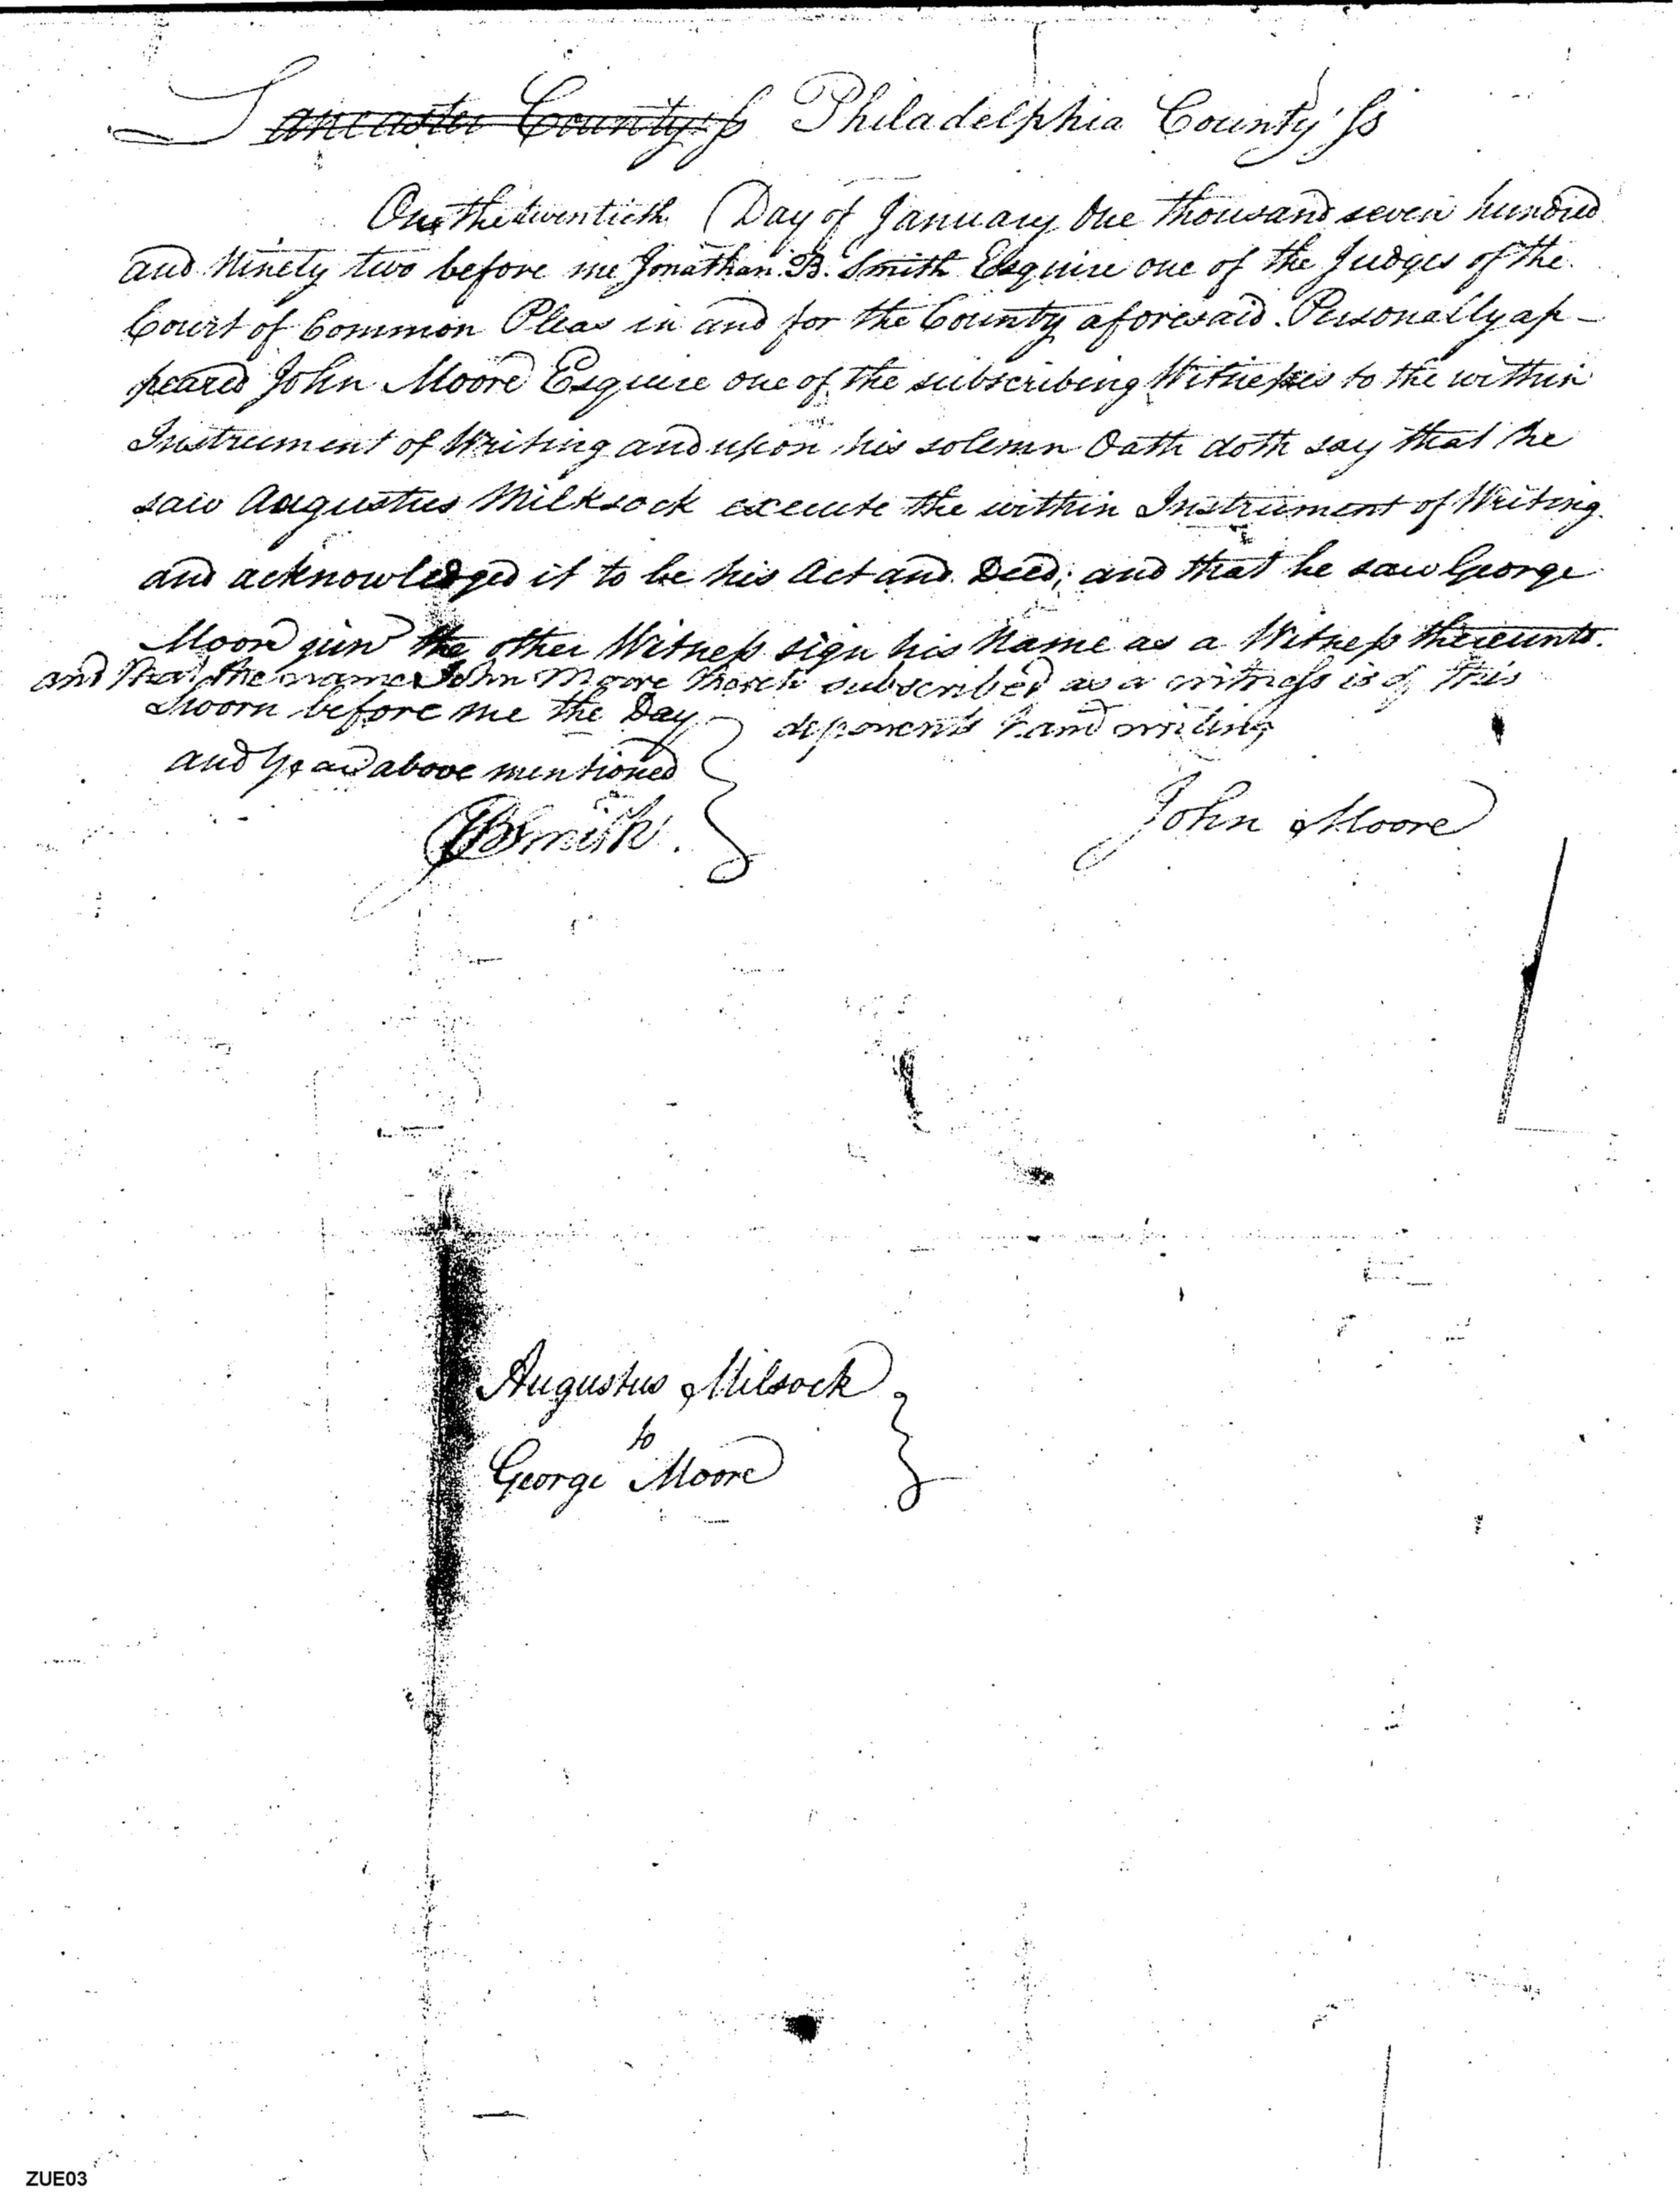 Lancaster County ss Philadelphia County ss
On the twentieth Day of January One thousand seven hundred
and Ninety two before me Jonathan B. Smith Esquire one of the Judges of the
Court of Common Pleas in and for the County aforesaid. Personally ap-
peared John Moore Esquire one of the subscribing Witnesses to the within
Instrument of Writing and upon his solemn Oath doth say that he
saw Augustus Milksock execute the within Instrument of Writing
and acknowledged it to be his Act and Deed; and that he saw George
Moore junr the other Witness sign his Name as a Witness thereunto.
and that the name John Moore thereto subscribed as a witness is of this
deponents hand writing
Sworn before me the Day
and Year above mentioned
JBSmith.
John Moore
Augustus Milsock
to
George Moore
ZUE03